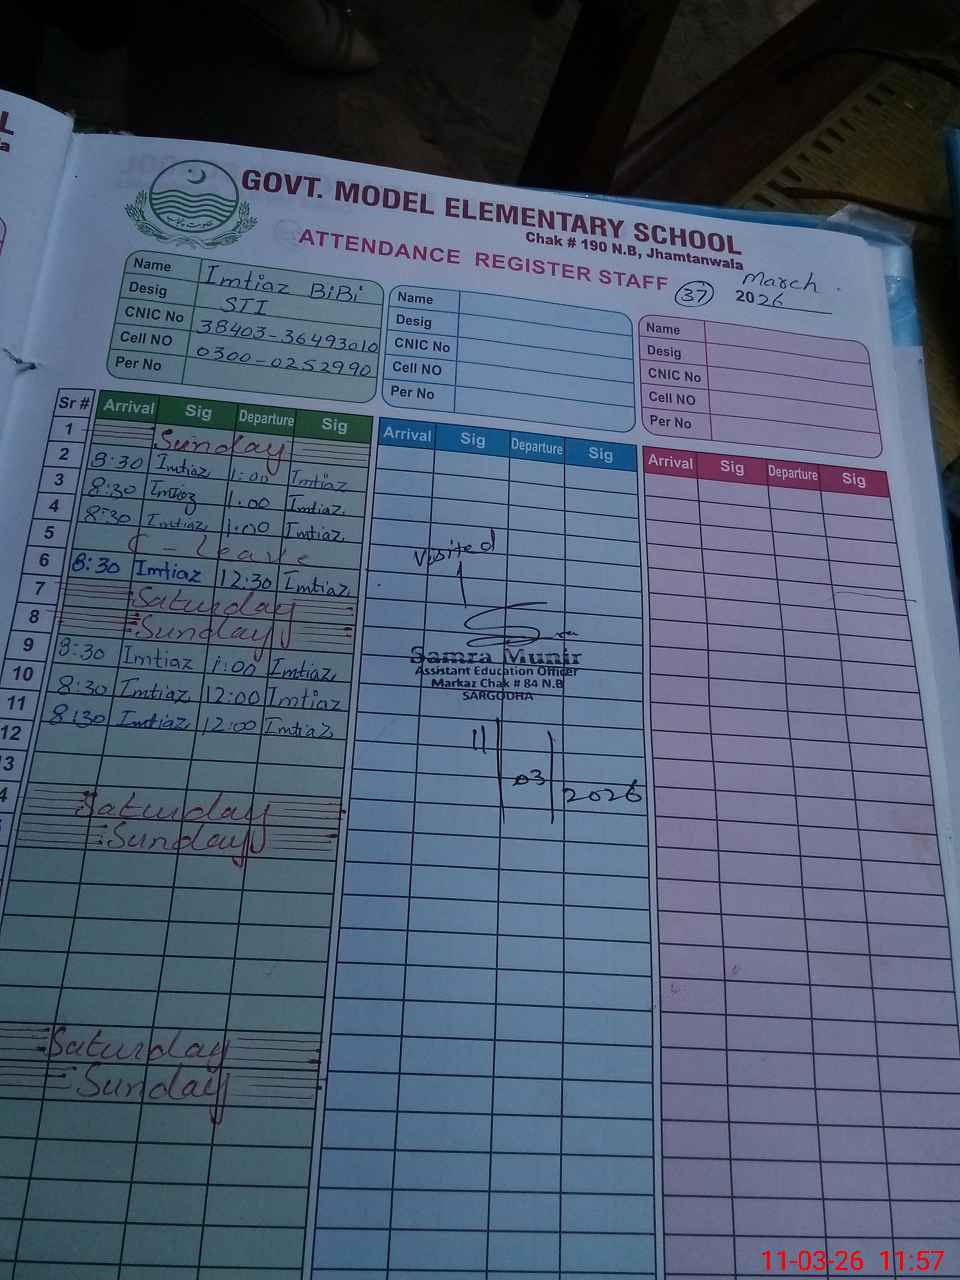 L
a
GOVT. MODEL ELEMENTARY SCHOOL
Chak # 190 N.B, Jhamtanwala
ATTENDANCE REGISTER STAFF
37
March
2026
Name Imtiaz BiBi
Desig STI
CNIC No 38403-36493010
Cell NO 0300-0252990
Per No
Name
Desig
CNIC No
Cell NO
Per No
Name
Desig
CNIC No
Cell NO
Per No
Sr # Arrival Sig Departure Sig
1 Sunday
2 8:30 Imtiaz 1:00 Imtiaz
3 8:30 Imtiaz 1:00 Imtiaz
4 8:30 Imtiaz 1:00 Imtiaz
5 C-leave
6 8:30 Imtiaz 12:30 Imtiaz
7 Saturday
8 Sunday
9 8:30 Imtiaz 1:00 Imtiaz
10 8:30 Imtiaz 12:00 Imtiaz
11 8:30 Imtiaz 12:00 Imtiaz
12
13
4 Saturday
Sunday
Saturday
Sunday
Arrival Sig Departure Sig
Visited
Samra Munir
Assistant Education Officer
Markaz Chak # 84 N.B
SARGODHA
11 03 2026
Arrival Sig Departure Sig
11-03-26 11:57